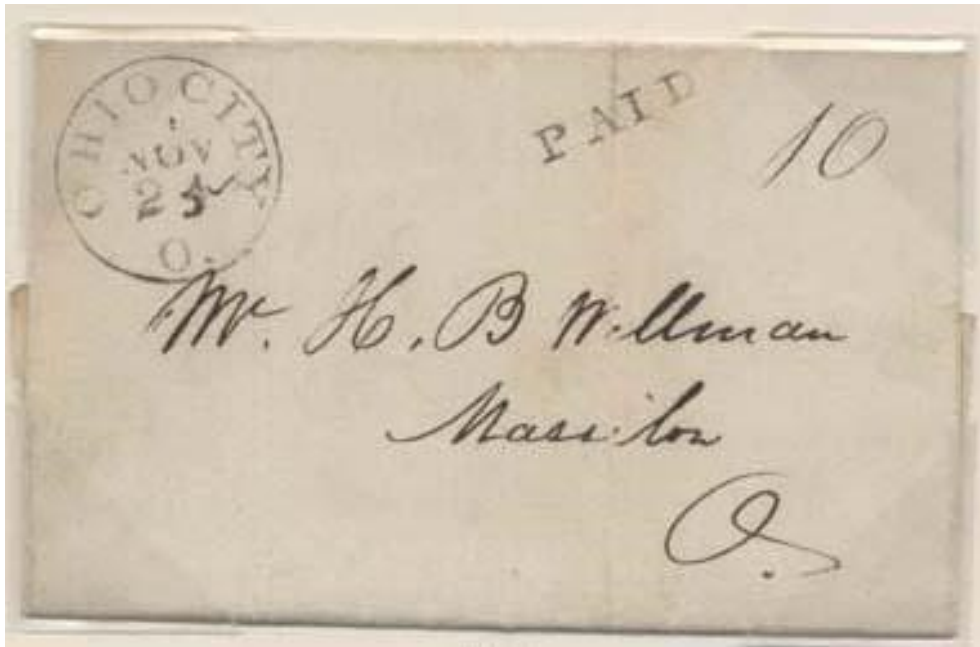 OHIO CITY
NOV
25
O.
PAID
10
Mr. H. B Willman
Massilon
O.